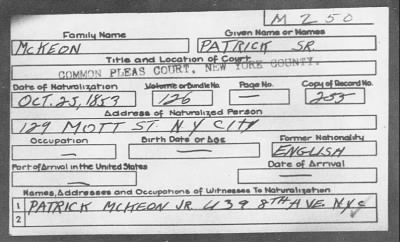 M 250
Family Name Given Name or Names
McKEON PATRICK SR.
Title and Location of Court
COMMON PLEAS COURT, NEW YORK COUNTY.
Date of Naturalization Volume or Bundle No. Page No. Copy of Record No.
OCT. 25, 1853 126 — 255
Address of Naturalized Person
129 MOTT ST. N.Y CITY
Occupation Birth Date or Age Former Nationality
— — ENGLISH
Port of Arrival in the United States Date of Arrival
— —
Names, Addresses and Occupations of Witnesses To Naturalization
1 PATRICK McKEON JR. 439 8TH AVE. NYC
2